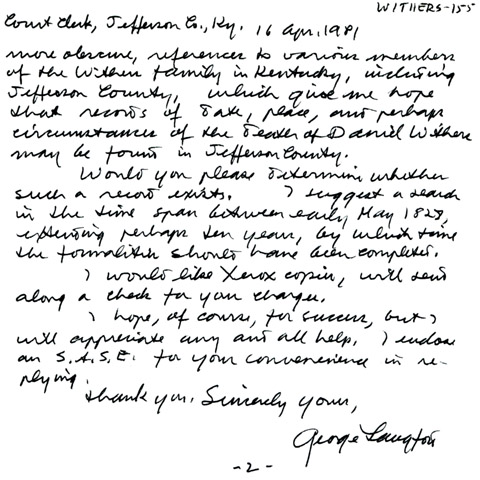 WITHERS-155
Court Clerk, Jefferson Co., Ky. 16 Apr. 1981
more obscure, references to various members
of the Withers family in Kentucky, including
Jefferson County, which give me hope
that records of date, place, and perhaps
circumstances of the death of Daniel Withers
may be found in Jefferson County.
Would you please determine whether
such a record exists. I suggest a search
in the time span between early May 1828,
extending perhaps ten years, by which time
the formalities should have been completed.
I would like Xerox copies, will send
along a check for your charges.
I hope, of course, for success, but I
will appreciate any and all help. I enclose
an S.A.S.E. for your convenience in re-
plying.
Thank you. Sincerely yours,
George Langton
-2-